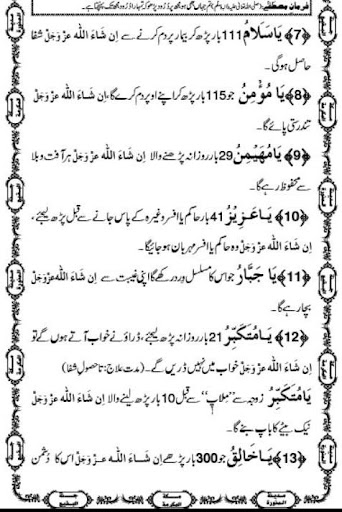 فرمانِ مصطفٰے
﴿7﴾ یَا سَلَامُ 111 بار پڑھ کر بیمار پر دم کرنے سے اِن شَاءَ اللّٰه عزَّوَجَلَّ شفا
حاصل ہوگی۔
﴿8﴾ یَا مُؤْمِنُ جو 115 بار پڑھ کر اپنے اوپر دم کرے گا، اِن شَاءَ اللّٰه عزَّوَجَلَّ
تندرستی پائے گا۔
﴿9﴾ یَا مُهَیْمِنُ 29 بار روزانہ پڑھنے والا اِن شَاءَ اللّٰه عزَّوَجَلَّ ہر آفت و بلا
سے محفوظ رہے گا۔
﴿10﴾ یَا عَزِیْزُ 41 بار حاکم یا افسر وغیرہ کے پاس جانے سے قبل پڑھ لیجئے،
اِن شَاءَ اللّٰه عزَّوَجَلَّ وہ حاکم یا افسر مہربان ہو جائیگا۔
﴿11﴾ یَا جَبَّارُ جو اس کا مسلسل ورد رکھے گا اپنی غیبت سے اِن شَاءَ اللّٰه عزَّوَجَلَّ
بچا رہے گا۔
﴿12﴾ یَا مُتَکَبِّرُ 21 بار روزانہ پڑھ لیجئے، ڈراؤنے خواب آتے ہوں گے تو
اِن شَاءَ اللّٰه عزَّوَجَلَّ خواب میں نہیں ڈریں گے۔ (مدت علاج: تا حصولِ شفا)
یَا مُتَکَبِّرُ زوجہ سے ”مِلاپ“ سے قبل 10 بار پڑھ لینے والا اِن شَاءَ اللّٰه عزَّوَجَلَّ
نیک بیٹے کا باپ بنے گا۔
﴿13﴾ یَا خَالِقُ جو 300 بار پڑھے اِن شَاءَ اللّٰه عزَّوَجَلَّ اس کا دُشمن